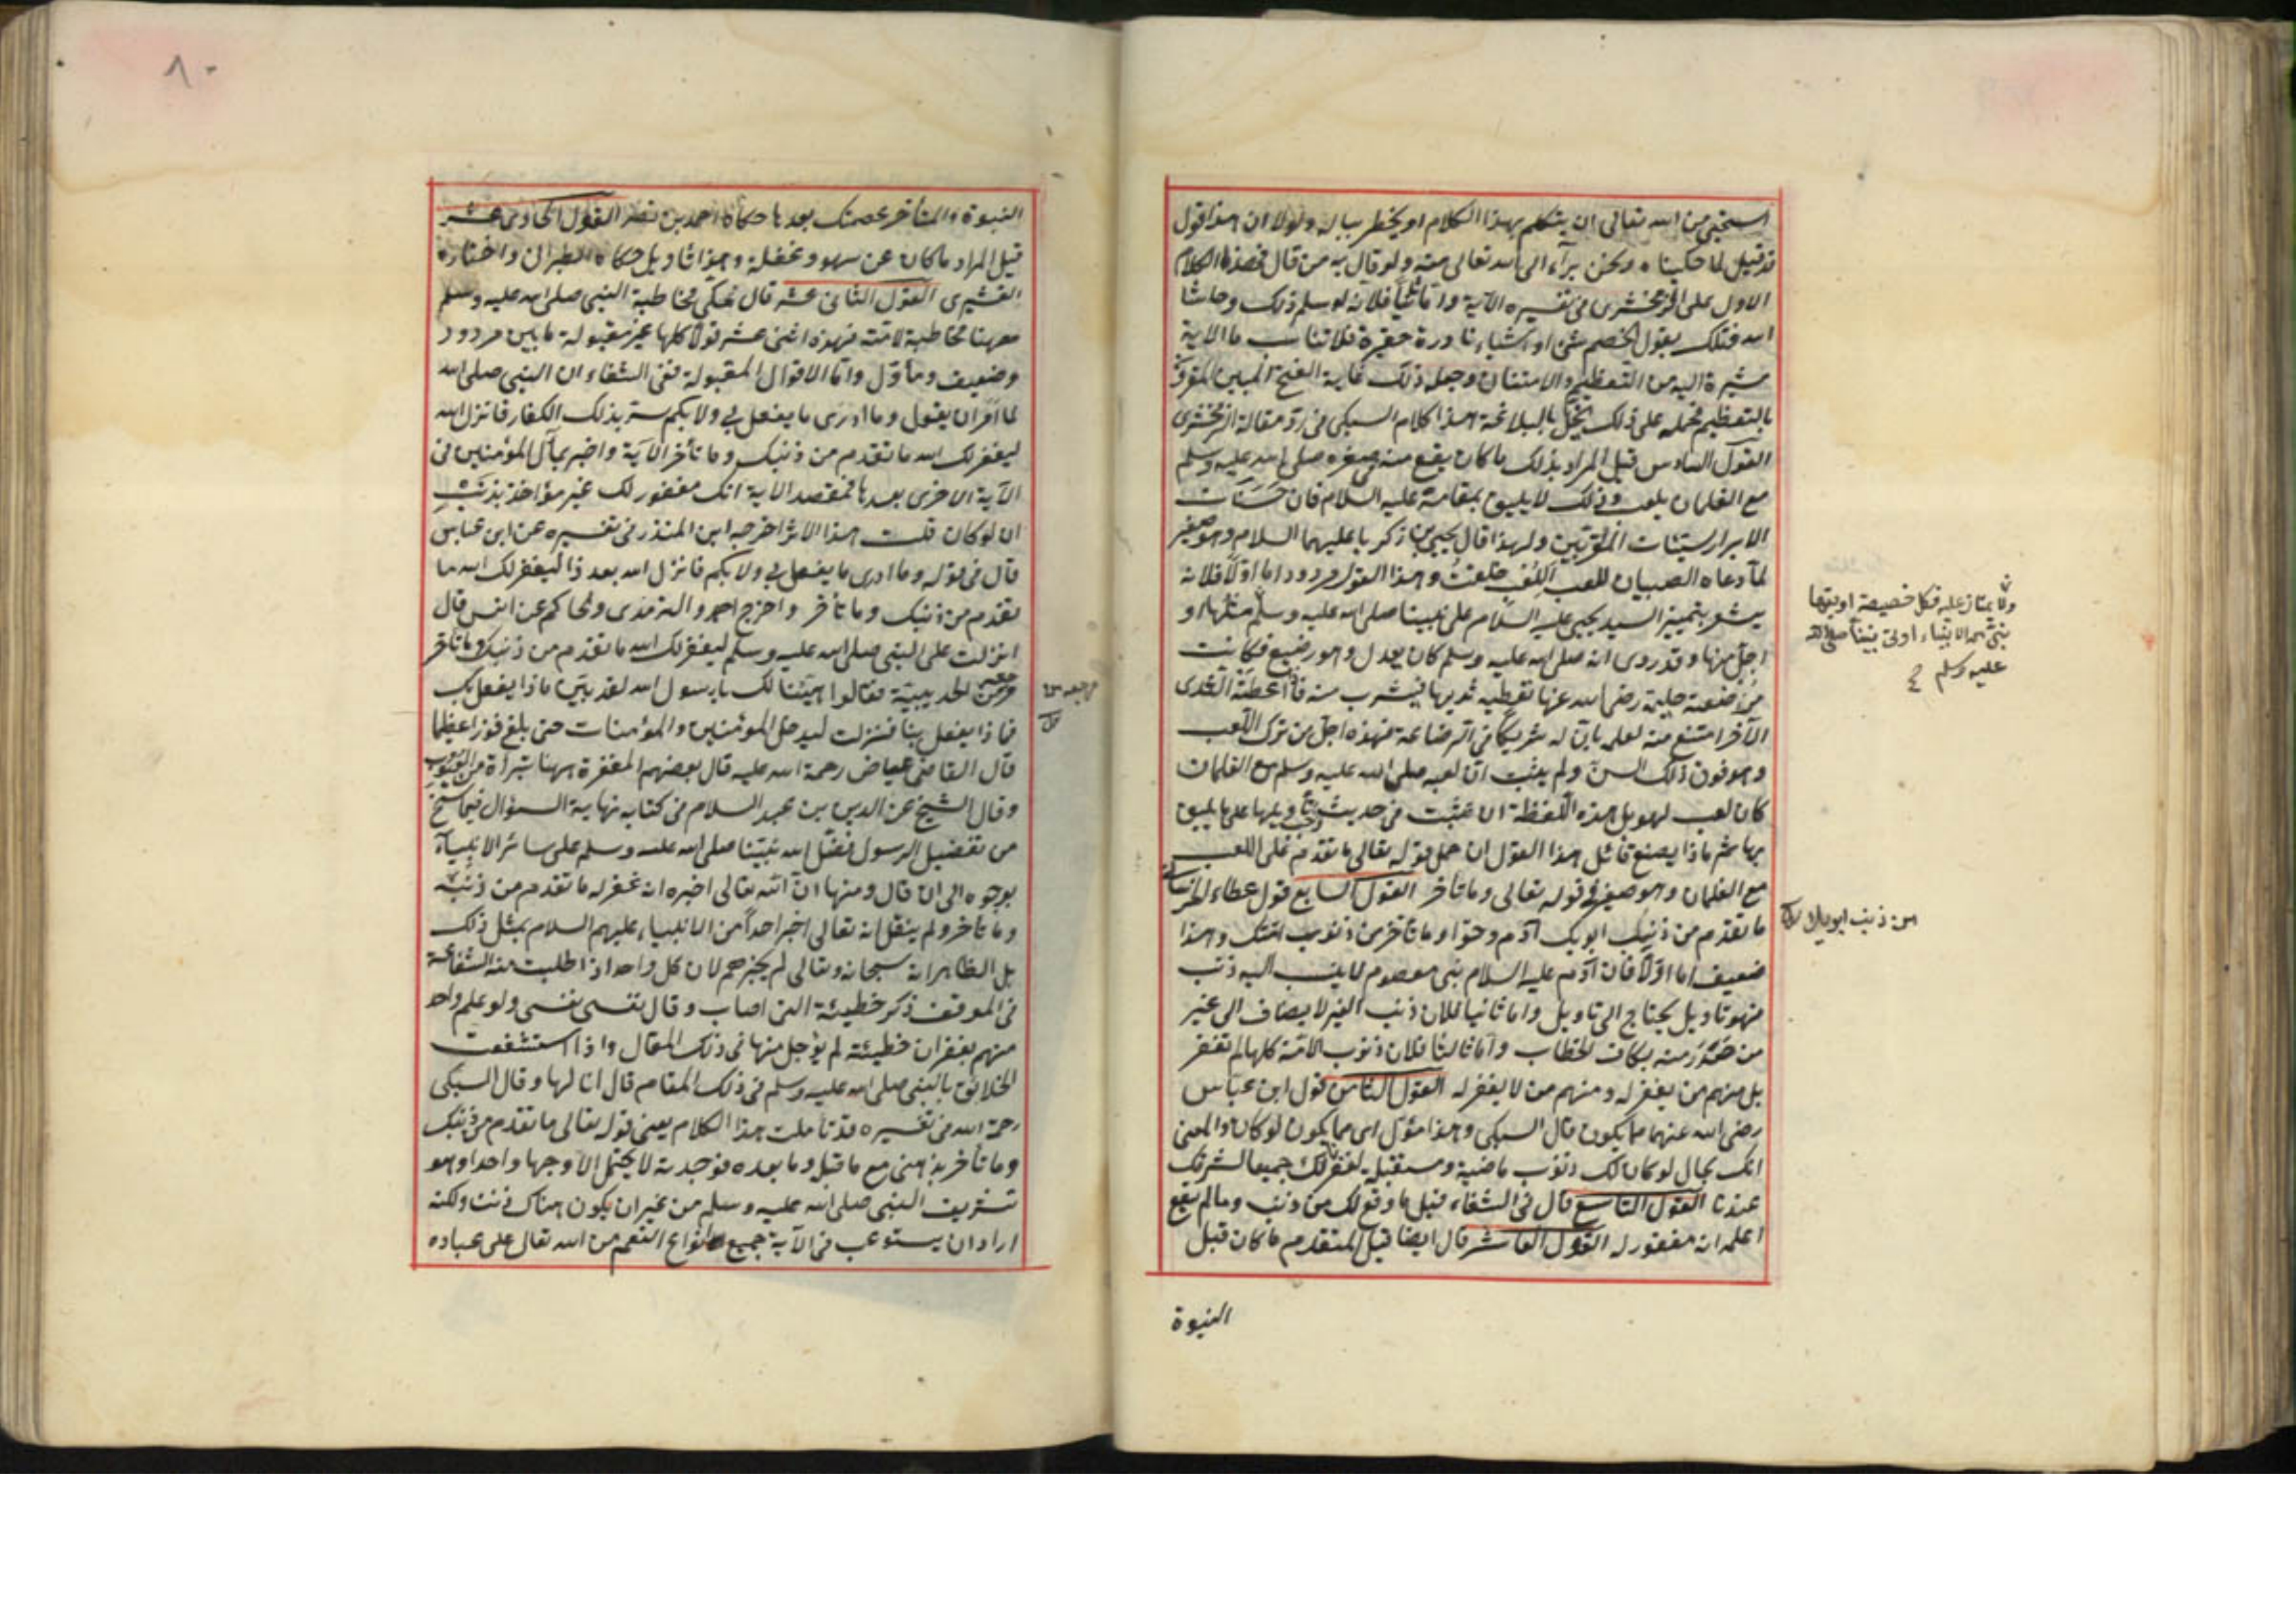 استحيي من الله تعالى ان يتكلم بهذا الكلام او يخطر بباله ولولا ان هذا قول
قد قيل لما حكيناه ونحن برآء الى الله تعالى منه ولو قال به من قال فهذا الكلام
الاول على الزمخشرى فى تفسيره الآية واما ثانيا فلانه لو سلم ذلك وحاشا
الله فتلك بقول الخصم شئ او اشياء نادرة حقيرة فلا تناسب ما الآية
مشيرة اليه من التعظيم والامتنان وجعل ذلك غاية الفتح المبين المقرون
بالتعظيم فحمله على ذلك يخل بالبلاغة هذا كلام السبكى فى رد مقالة الزمخشرى
القول السادس قيل المراد بذلك ما كان يقع منه فى صغره صلى الله عليه وسلم
مع الغلمان يلعب وذلك لا يليق بمقامه عليه السلام فان حسنات
الابرار سيئات المقربين ولهذا قال يحيى بن زكريا عليهما السلام وهو صغير
لما دعاه الصبيان للعب اللعب خلقت وهذا القول مردود اما اولا فلانه
يشعر بتمييز السيد يحيى عليه السلام على نبينا صلى الله عليه وسلم
ولا يمتاز عليه فكل خصيصة اوتيها
نبى من الانبياء اوتى نبينا صلى الله
عليه وسلم
مثلها او
اجل منها وقد روى انه صلى الله عليه وسلم كان يعدل وهو رضيع فكانت
مرضعته حليمة رضى الله عنها تعطيه ثديها فيشرب منه فاذا اعطته الثدى
الآخر امتنع منه لعلمه بان له شريكا فى الرضاعة فهذه اجل من ترك اللعب
وهو فى ذلك السن ولم يثبت ان لعبه صلى الله عليه وسلم مع الغلمان
كان لعب لهو بل هذه اللفظة ان ثبتت فى حديث وجب تأويلها على ما يليق
بها ثم ماذا يصنع قائل هذا القول ان حمل قوله تعالى ما تقدم على اللعب
مع الغلمان وهو صغير فى قوله تعالى وما تأخر القول السابع قول عطاء الخراسانى
ما تقدم من ذنبك
من ذنب ابويك
ابويك آدم وحوا وما تأخر من ذنوب امتك وهذا
ضعيف اما اولا فان آدم عليه السلام نبى معصوم لا ينسب اليه ذنب
فهو تأويل يحتاج الى تأويل واما ثانيا فلان ذنب الغير لا يضاف الى غير
من صدر منه بكاف الخطاب واما ثالثا فلان ذنوب الامة كلها لم تغفر
بل منهم من يغفر له ومنهم من لا يغفر له القول الثامن قول ابن عباس
رضى الله عنهما مما يكون قال السبكى وهذا مؤول اى مما يكون لو كان والمعنى
انك بحال لو كان لك ذنوب ماضية ومستقبلة لغفر لك جميعا لشرفك
عندنا القول التاسع قال فى الشفاء قيل ما وقع لك من ذنب وما لم يقع
اعلمه انه مغفور له القول العاشر قال ايضا قيل المتقدم ما كان قبل
النبوة
٨٠
النبوة والمتأخر عصمتك بعدها حكاه احمد بن نصر القول الحادى عشر
قيل المراد ما كان عن سهو وغفلة وهو تأويل حكاه الطبرانى واختاره
القشيرى القول الثانى عشر قال مكى مخاطبة النبى صلى الله عليه وسلم
ههنا مخاطبة لامته فهذه اثنى عشر قولا كلها غير مقبولة ما بين مردود
وضعيف ومأول واما الاقوال المقبولة ففى الشفاء ان النبى صلى الله
لما امر ان يقول وما ادرى ما يفعل بى ولا بكم سر بذلك الكفار فانزل الله
ليغفر لك الله ما تقدم من ذنبك وما تأخر الآية واخبر بمآل المؤمنين فى
الآية الاخرى بعدها فمقصد الآية انك مغفور لك غير مؤاخذ بذنب
ان لو كان قلت هذا الاثر اخرجه ابن المنذر فى تفسيره عن ابن عباس
قال فى قوله وما ادرى ما يفعل بى ولا بكم فانزل الله بعد ذا ليغفر لك الله ما
تقدم من ذنبك وما تأخر واخرج احمد والترمذى والحاكم عن انس قال
انزلت على النبى صلى الله عليه وسلم ليغفر لك الله ما تقدم من ذنبك وما تأخر
مرجعه من الحديبية فقالوا هنيئا لك يا رسول الله لقد بين ماذا يفعل بك
فماذا يفعل بنا فنزلت ليدخل المؤمنين والمؤمنات حتى بلغ فوزا عظيما
قال القاضى عياض رحمة الله عليه قال بعضهم المغفرة ههنا تبرأة من العيوب
وقال الشيخ عز الدين بن عبد السلام فى كتابه نهاية السؤال فيما سنح
من تفضيل الرسول فضل الله نبينا صلى الله عليه وسلم على سائر الانبياء
بوجوه الى ان قال ومنها ان الله تعالى اخبره انه غفر له ما تقدم من ذنبه
وما تأخر ولم ينقل انه تعالى اخبر احدا من الانبياء عليهم السلام بمثل ذلك
بل الظاهر انه سبحانه وتعالى لم يخبرهم لان كل واحد اذا طلبت منه الشفاعة
فى الموقف ذكر خطيئة التى اصاب وقال نفسى نفسى ولو علم واحد
منهم بغفران خطيئته لم يوجل منها فى ذلك المقال واذا استشفعت
الخلائق بالنبى صلى الله عليه وسلم فى ذلك المقام قال انا لها وقال السبكى
رحمة الله فى تفسيره قد تأملت هذا الكلام يعنى قوله تعالى ما تقدم من ذنبك
وما تأخر بذهنى مع ما قبل وما بعده فوجدته لا يحتمل الا وجها واحدا وهو
تشريف النبى صلى الله عليه وسلم من غير ان يكون هناك ذنب ولكنه
اراد ان يستوعب فى الآية جميع انواع النعم من الله تعالى على عباده